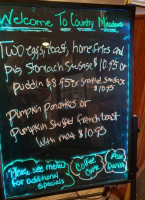 Welcome To Country Meadows
Two eggs, toast, home fries and
Pig Stomach Sausage $10.95 or
Puddin $8.95 or Sausage
$10.95
Pumpkin Pancakes or
Pumpkin Stuffed french toast
with meat $10.95
Please see menu
for additional
specials
Coffee
Cake